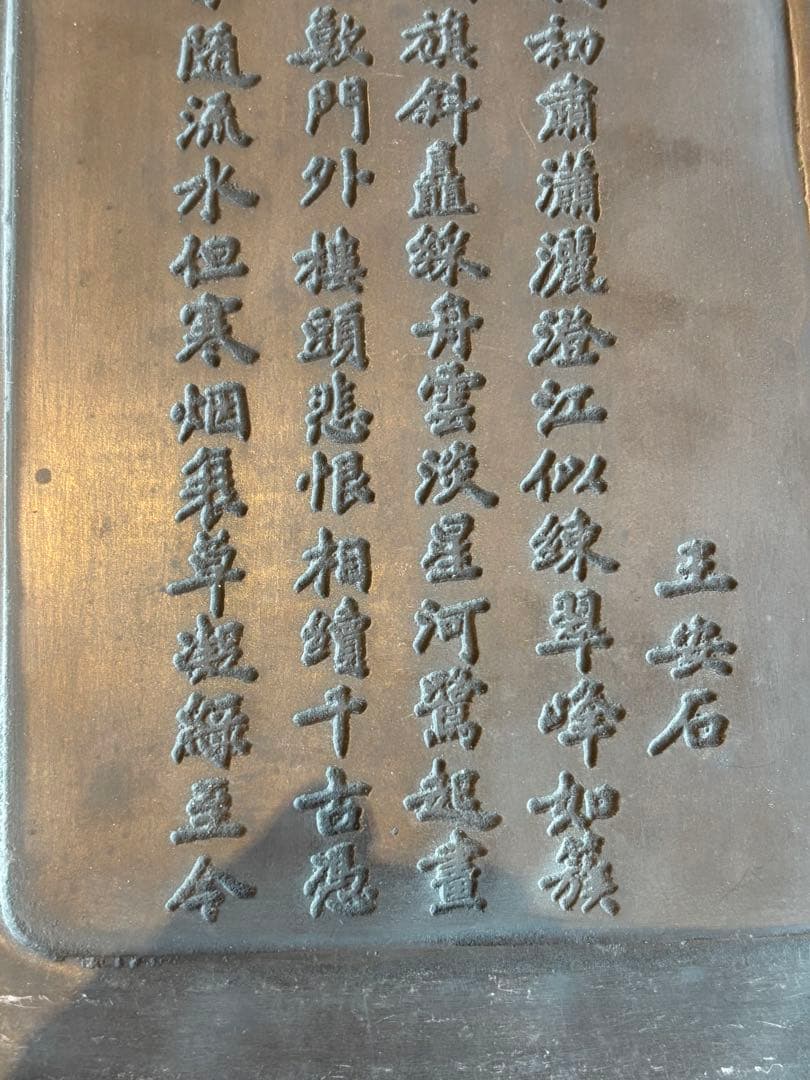 王安石
初肅瀟灑澄江似練翠峰如簇
旗斜矗綵舟雲淡星河鷺起畫
歎門外樓頭悲恨相續千古憑
隨流水但寒烟衰草凝綠至今